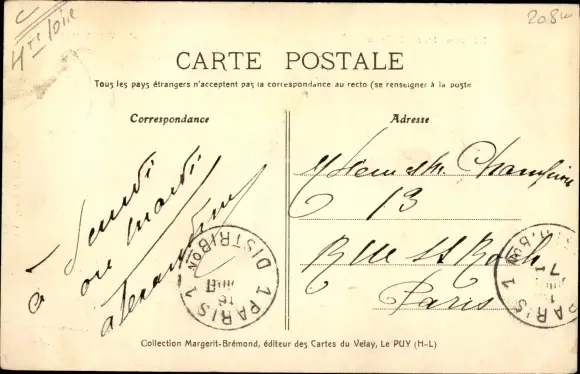 Hte loire
208
CARTE POSTALE
Tous les pays étrangers n'acceptent pas la correspondance au recto (se renseigner à la poste
Correspondance
Adresse
à Lundi
ou mardi
13
Rue St Roch
Paris
PARIS 1
DISTRIBON
PARIS 1
Collection Margerit-Brémond, éditeur des Cartes du Velay, Le PUY (H-L)